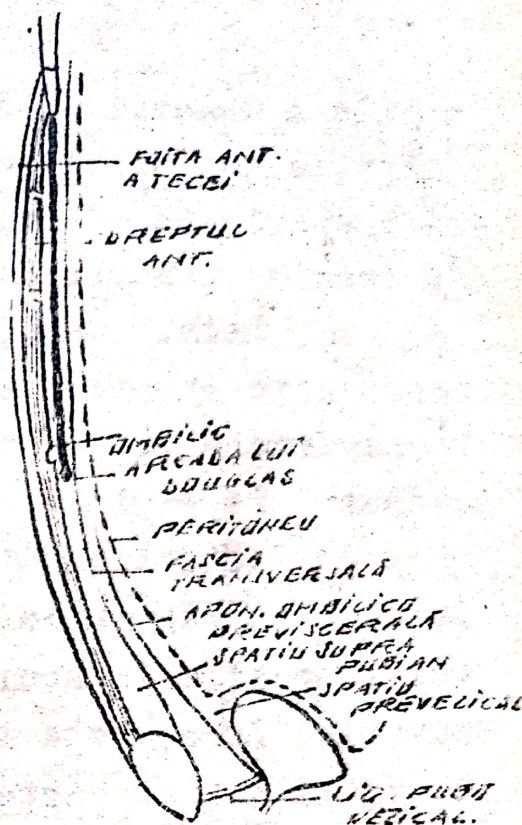 FOIȚA ANT.
A TECEI
DREPTUL
ANT.
OMBILIC
ARCADA LUI
DOUGLAS
PERITONEU
FASCIA
TRANSVERSALĂ
APON. OMBILICO
PREVISCERALĂ
SPATIU SUPRA
PUBIAN
SPATIU
PREVEZICAL
LIG. PUBO
VEZICAL.